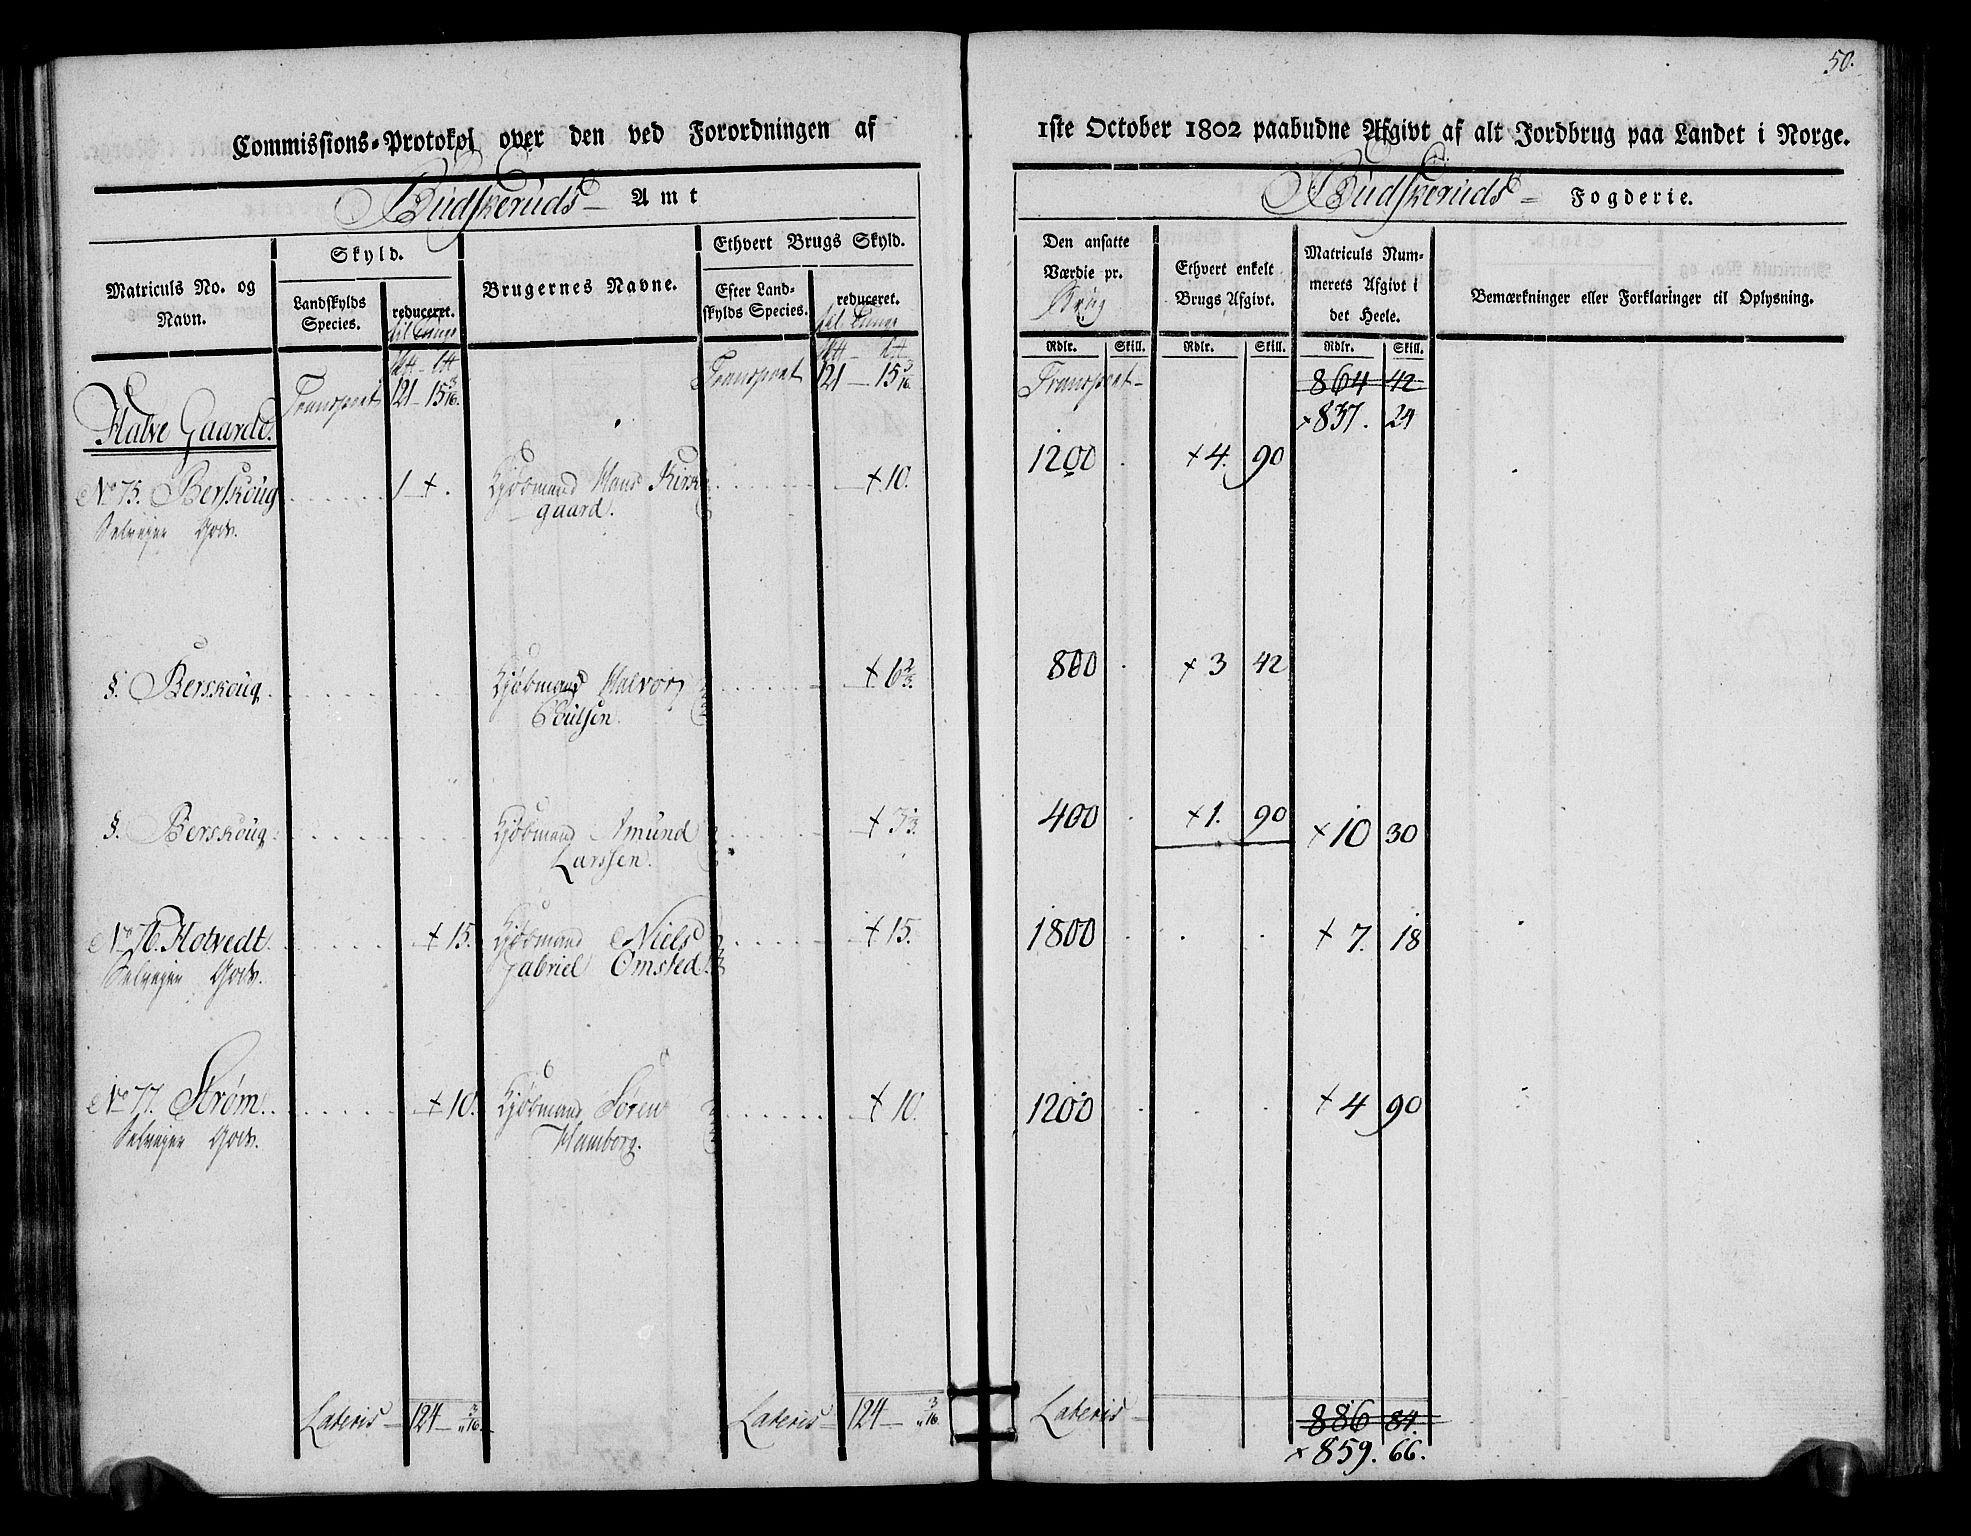 50.
Commissions-Protokol over den ved Forordningen af 1ste October 1802 paabudne Afgivt af alt Jordbrug paa Landet i Norge.
Budskeruds Amt
Budskeruds Fogderie.
Matriculs No. og Navn.
Skyld.
Landskylds Species.
reduceret.
til Tunge
Brugernes Navne.
Ethvert Brugs Skyld.
Efter Landskylds Species.
reduceret.
til Tunge
Den ansatte Værdie pr. Brug
Rdlr. Skill.
Ethvert enkelt Brugs Afgivt.
Rdlr. Skill.
Matriculs Nummerets Afgivt i det Heele.
Rdlr. Skill.
Bemærkninger eller Forklaringer til Oplysning.
Transport 121 – 15 3/16. Transport 121 – 15 3/16 Transport – 864 42
× 837. 24
Halve Gaarde.
No 75. Berskoug 1 + . Kjøbmand Hans Kirk + 10. 1200 + 4. 90
gaard.
Selveier Gods.
§. Berskoug Kjøbmand Halvor + 6 2/3. 800 + 3 42
Poulsen
§. Berskoug Kjøbmand Amund + 3 1/3. 400 + 1. 90 + 10 30
Larssen.
No 76. Hotvedt + 15. Kjøbmand Niels + 15. 1800 + 7. 18
Selveier Gods. Gabriel Omsted
No 77. Strøm + 10. Kjøbmand Søren + 10. 1200 + 4 90
Selveier Gods. Hamborg.
Lateris – 124 – " 3/16. Lateris – 124 – " 3/16 Lateris – 886 84.
× 859. 66.